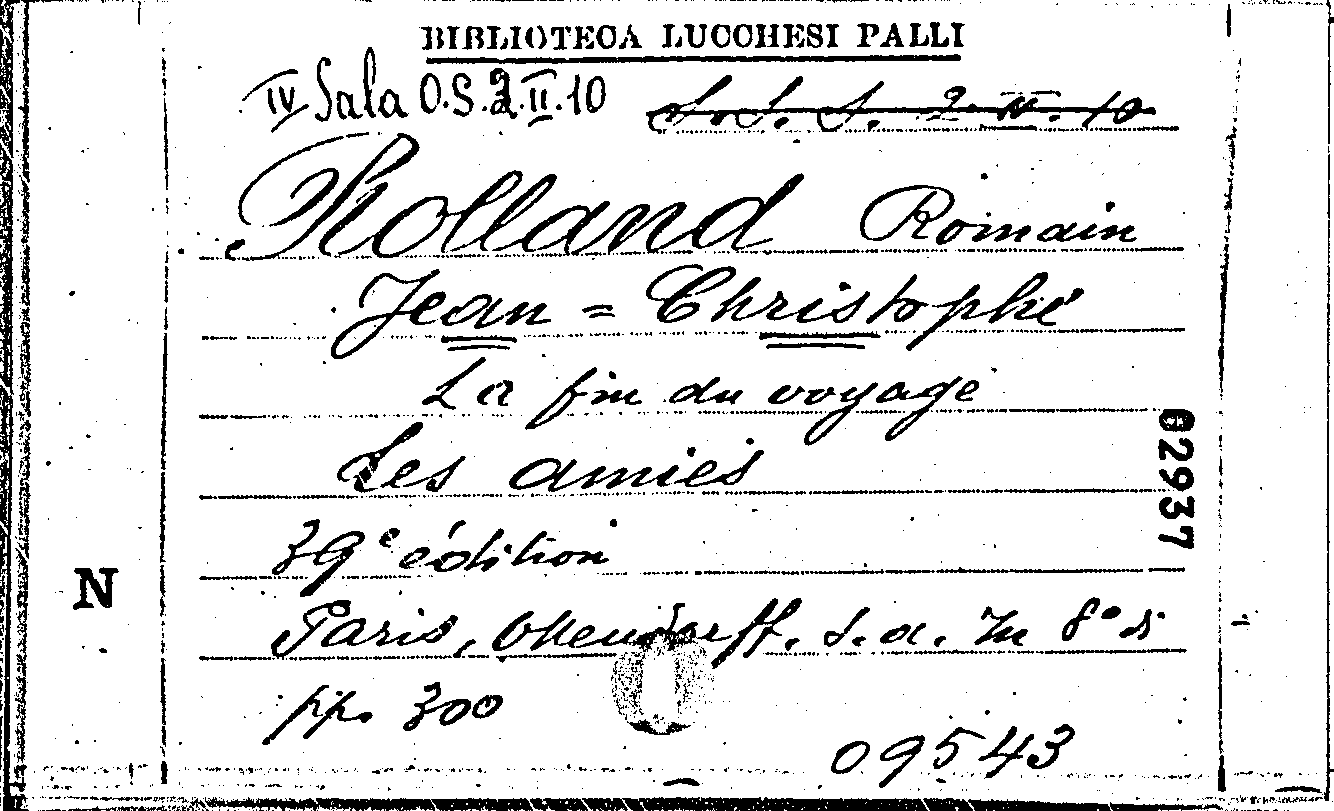 BIBLIOTECA LUCCHESI PALLI
IV Sala O.S.2.II.10
S. S. 2 II. 10
Rolland Romain
Jean = Christophe
La fin du voyage
Les amies
39e édition
Paris, Ollendorff. s.a. In 8° di
pp. 300
09543
02937
N